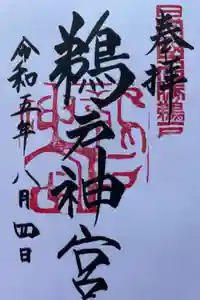 奉拝
鵜戸神宮
令和五年八月四日